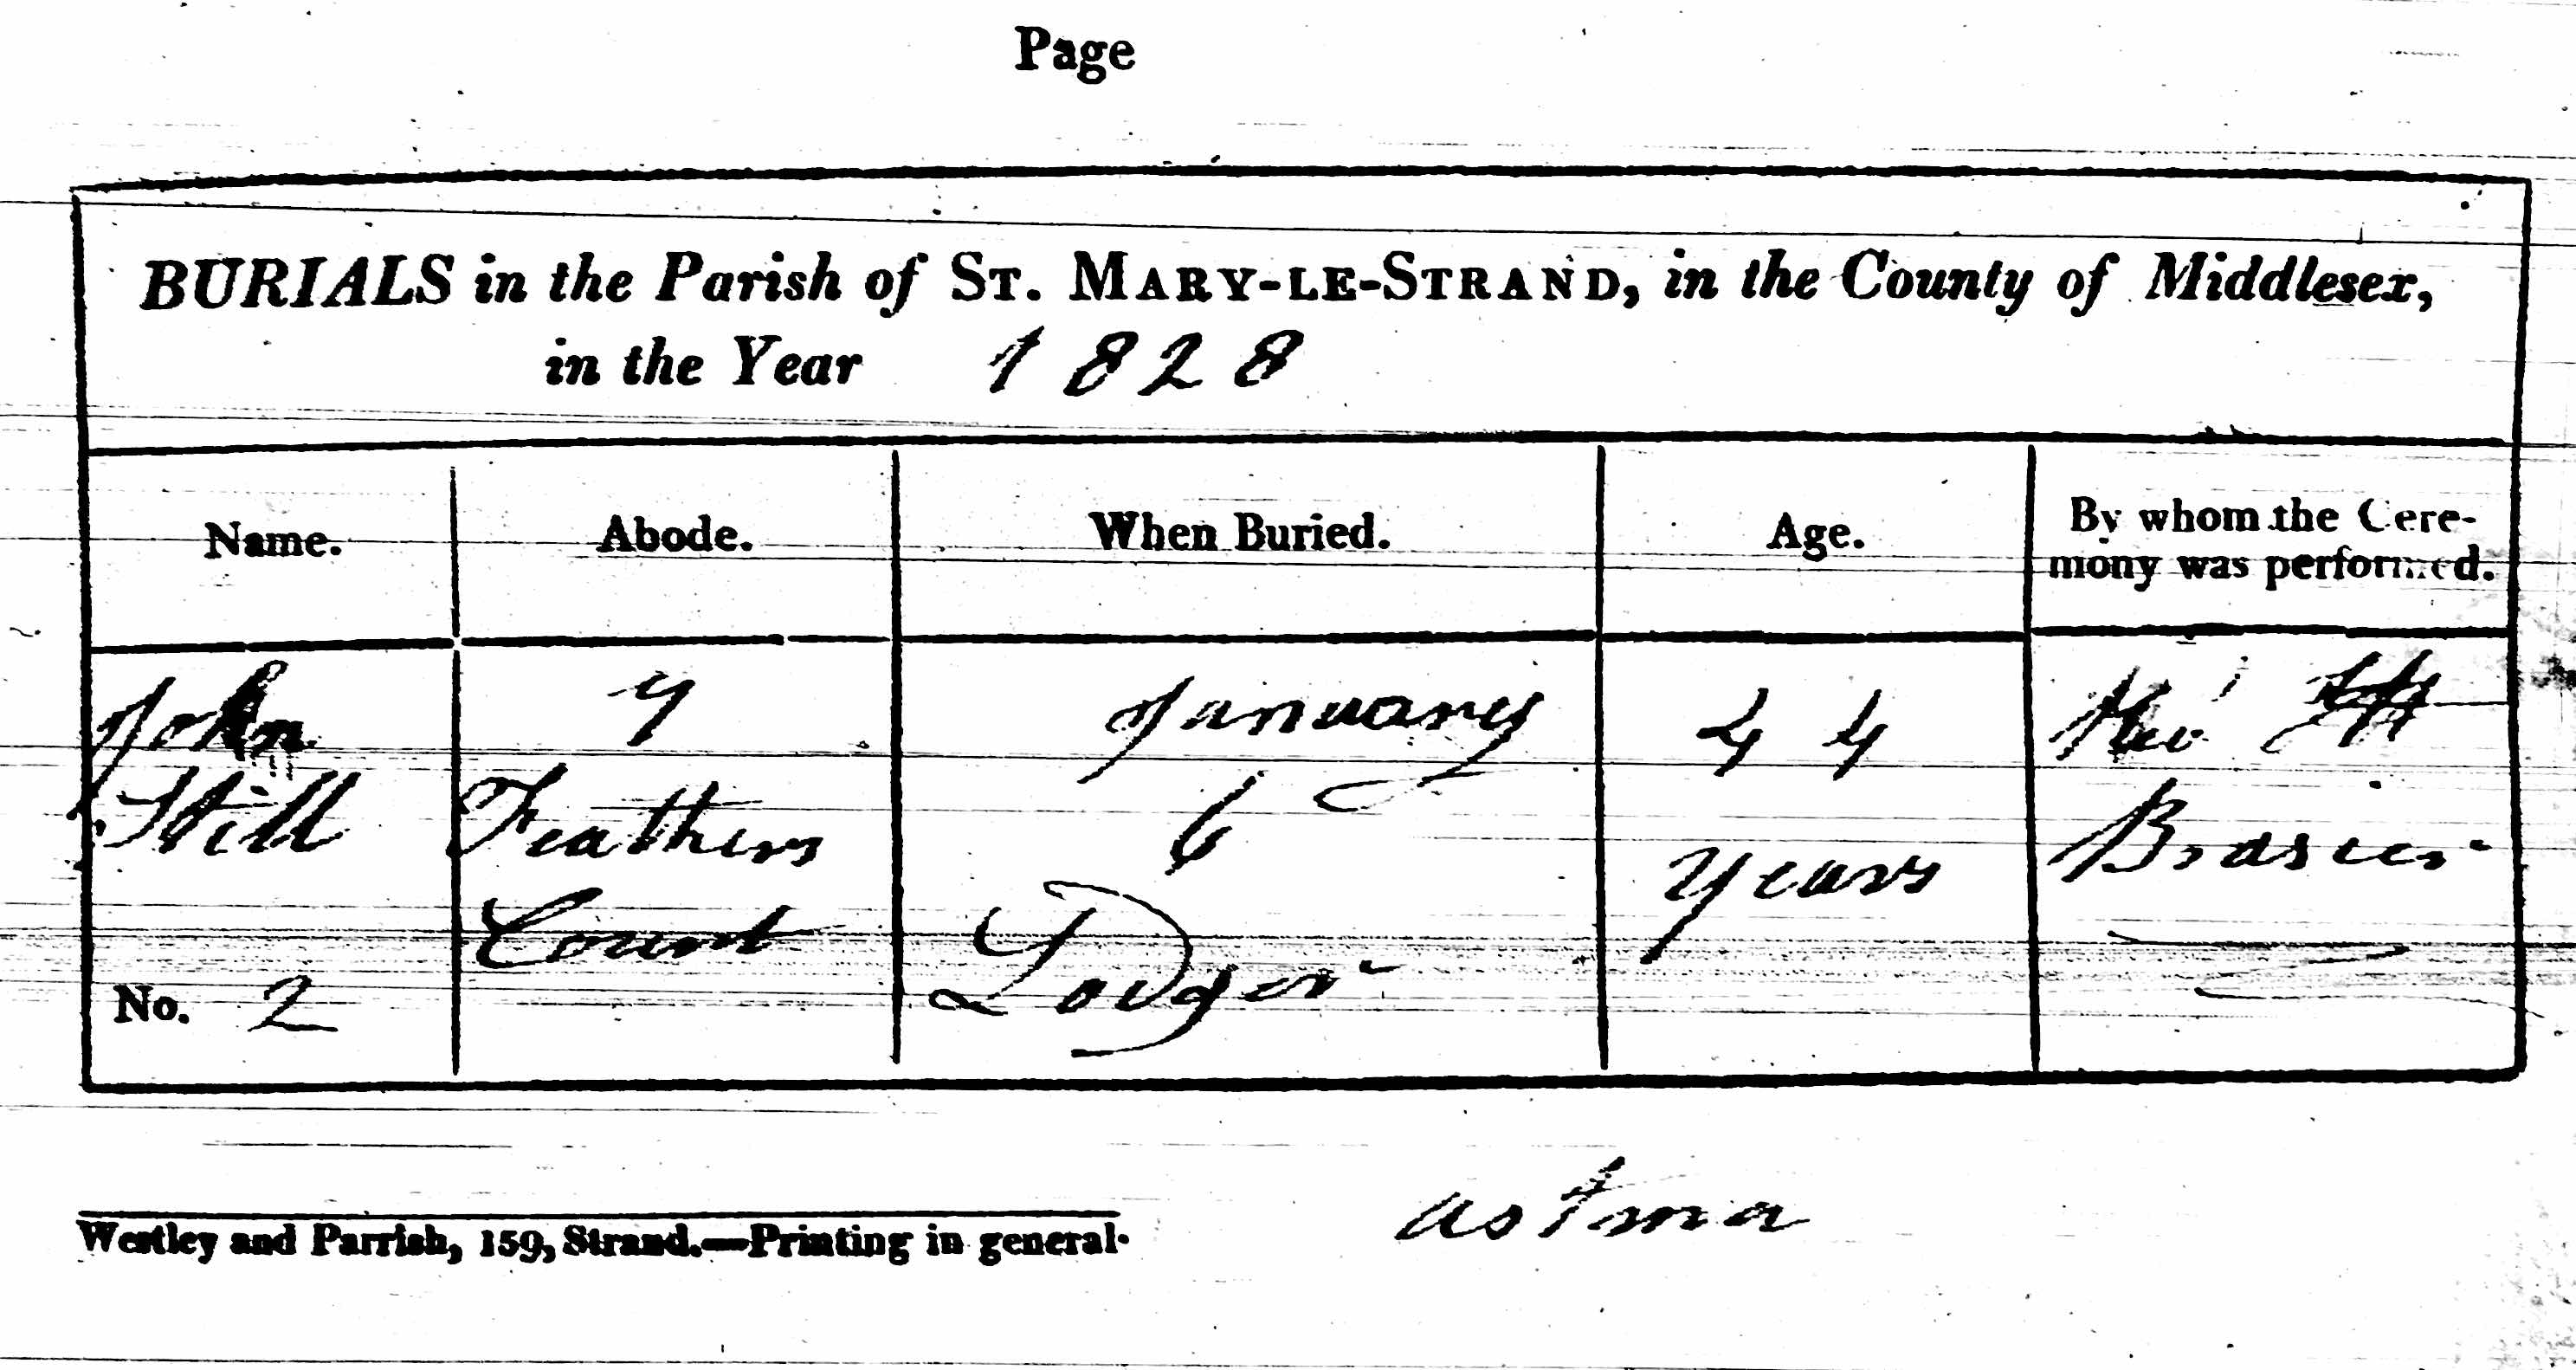 Page
BURIALS in the Parish of ST. MARY-LE-STRAND, in the County of Middlesex,
in the Year 1828
Name.
Abode.
When Buried.
Age.
By whom the Cere-
mony was performed.
John
Still
No. 2
7
Feathers
Court
January
6
Lodger
44
Years
Rev
Brasier
astma
Westley and Parrish, 159, Strand.—Printing in general.